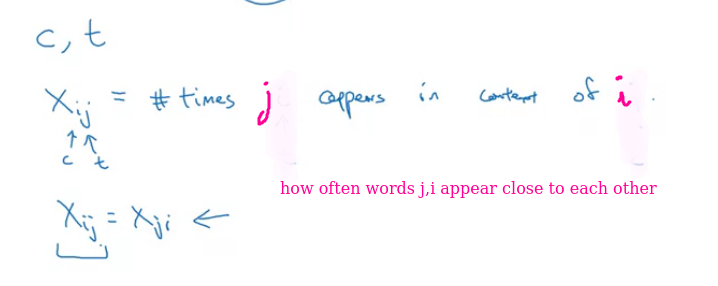 c, t
Xij = # times j appears in context of i.
↑ ↑
c t
how often words j,i appear close to each other
Xij = Xji ←